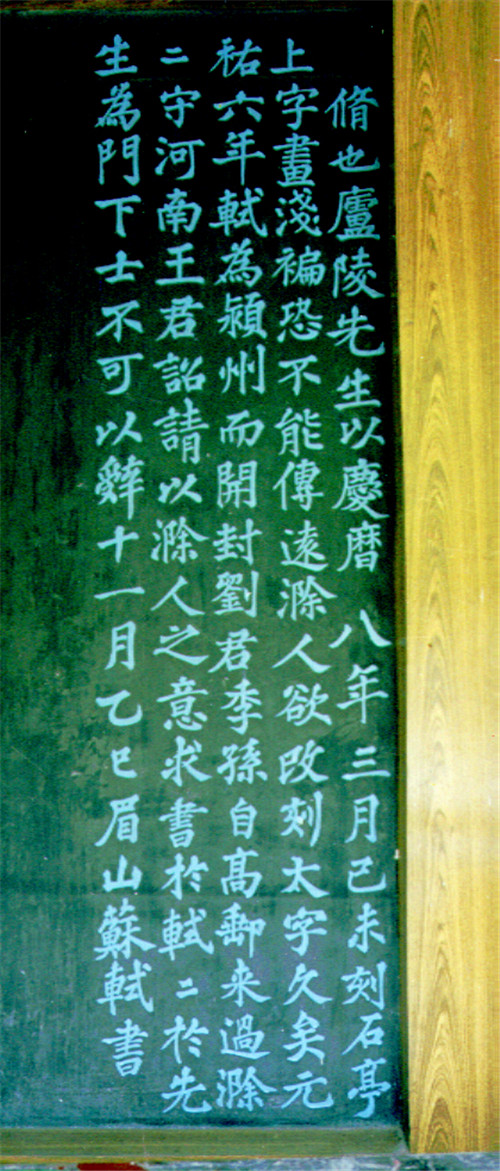 脩也廬陵先生以慶曆八年三月己未刻石亭
上字畫淺褊恐不能傳遠滁人欲改刻太字久矣元
祐六年軾為潁州而開封劉君季孫自髙郵来過滁
二守河南王君詔請以滁人之意求書於軾二於先
生為門下士不可以辭十一月乙巳眉山蘇軾書